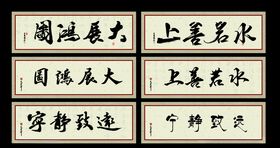 大展鴻圖
上善若水
大展鴻圖
上善若水
寧靜致遠
宁靜致远